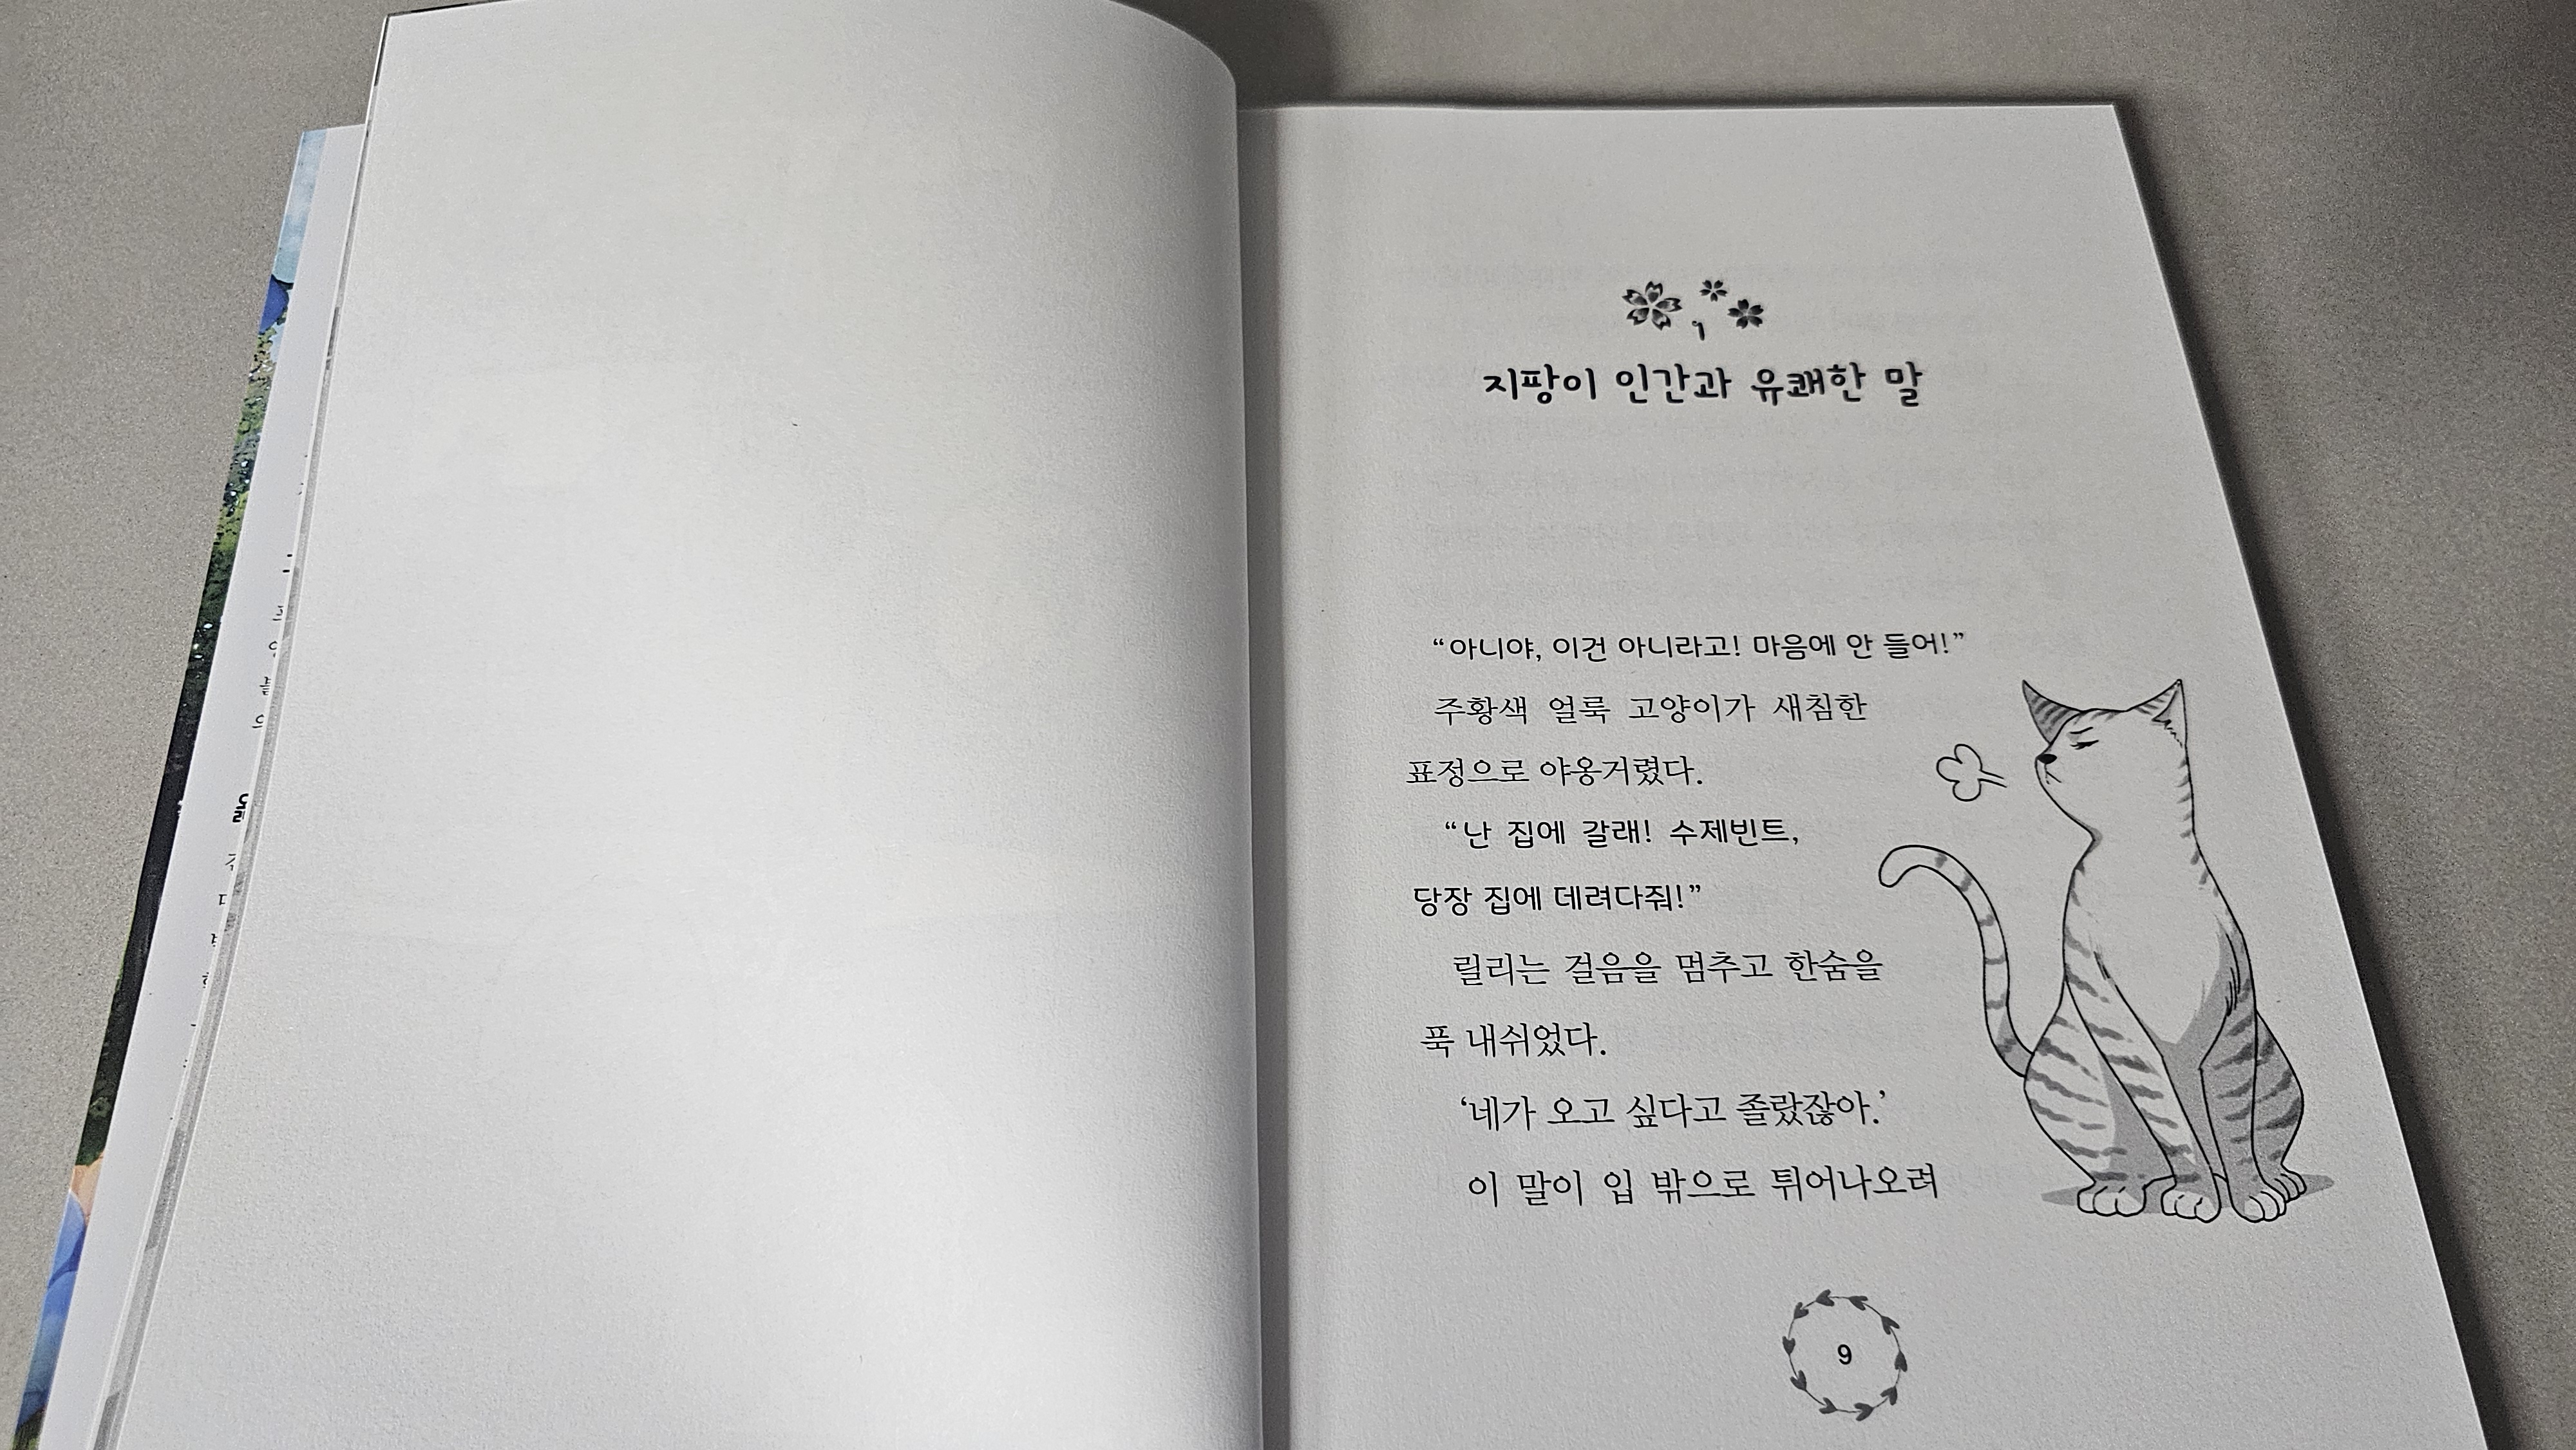 1
지팡이 인간과 유쾌한 말
“아니야, 이건 아니라고! 마음에 안 들어!”
주황색 얼룩 고양이가 새침한
표정으로 야옹거렸다.
“난 집에 갈래! 수제빈트,
당장 집에 데려다줘!”
릴리는 걸음을 멈추고 한숨을
푹 내쉬었다.
‘네가 오고 싶다고 졸랐잖아.’
이 말이 입 밖으로 튀어나오려
9